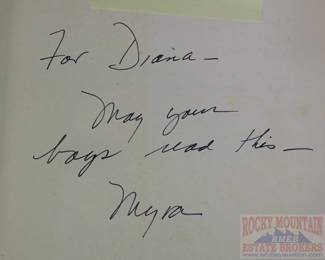 For Diana -
May your
boys read this -
Myra
ROCKY MOUNTAIN
RMEB
ESTATE BROKERS